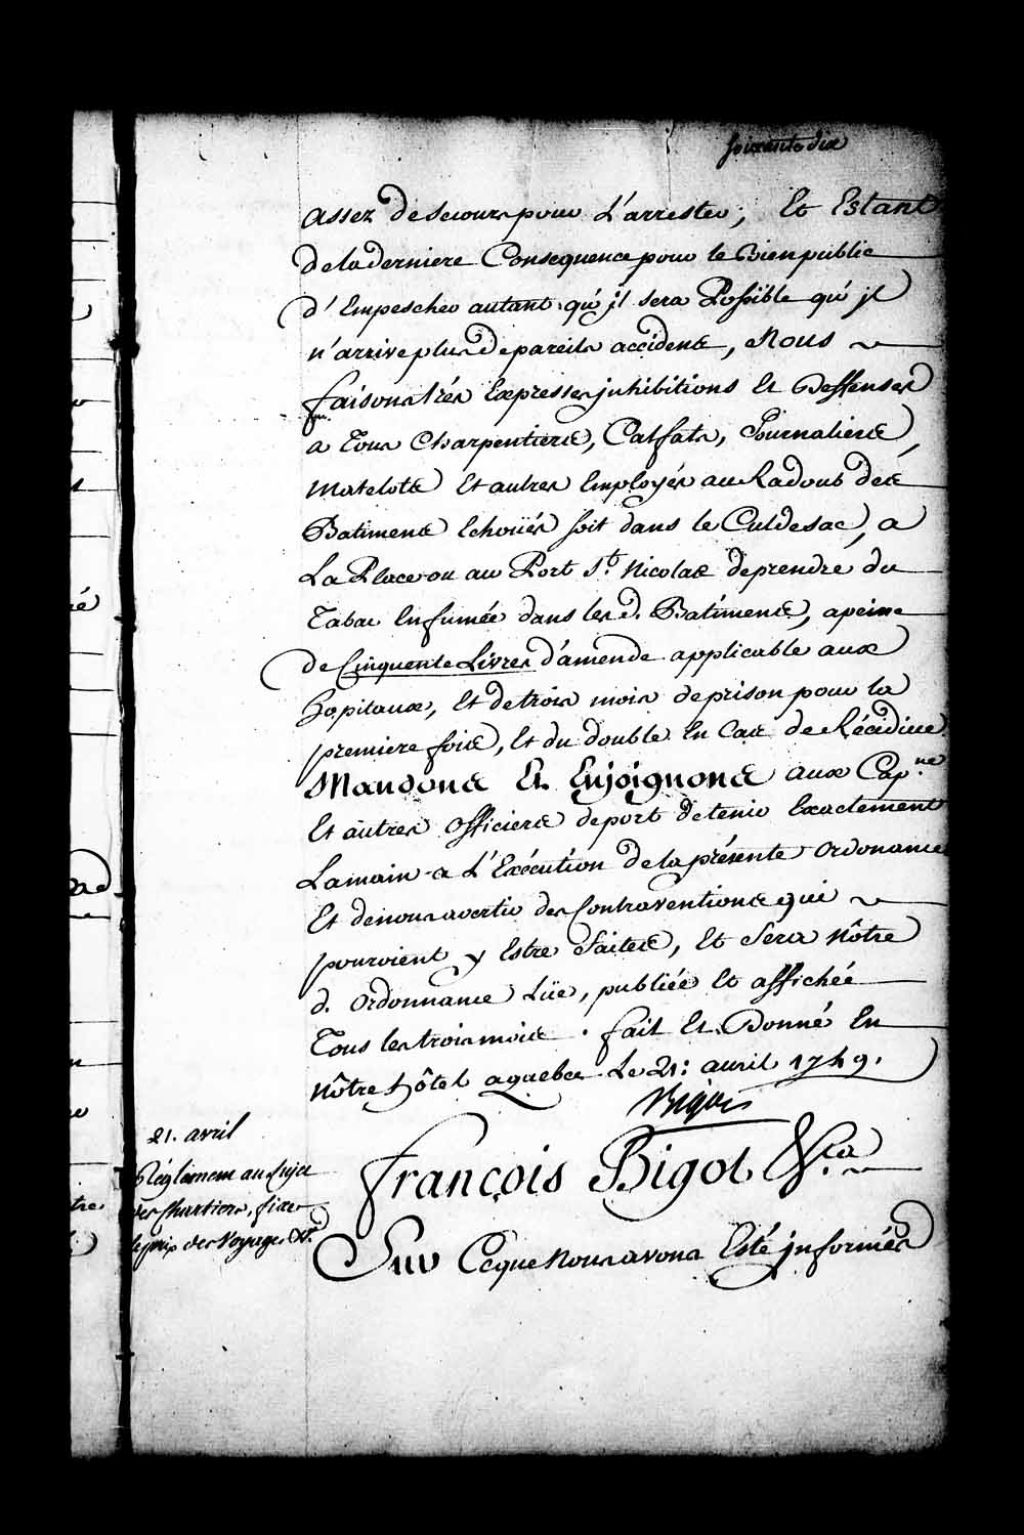 soixante dix
assez de secours pour L'arrester; Et Estant
de la derniere Consequence pour le Bien public
d'Empescher autant qu'jl sera Possible qu'jl
n'arrive plus de pareils accidents, Nous
faisons trés Expresses jnhibitions Et Deffenses
a Tous Charpentiers, Calfats, Journaliers,
Matelots Et autres Employés au Radoub des
Batiments Echoüés soit dans le Culdesac, a
La Place ou au Port St. Nicolas de prendre du
Tabac En fumée dans les d. Batiments, a peine
de Cinquente Livres d'amende applicable aux
hopitaux, Et de trois mois de prison pour la
premiere fois, Et du double En Cas de Récidive
Mandons Et Enjoignons aux Cap.ne
Et autres officiers de port de tenir Exactement
La main a L'Exécution de la présente ordonance
Et de nous avertir des Contraventions qui
pouroient y Estre faites, Et sera nôtre
d. ordonnance Lüe, publiée Et affichée
Tous les trois mois. fait Et Donné En
nôtre hôtel a quebec Le 21: avril 1749.
Bigot
21. avril
Réglement au sujet
des Chartiers, fixe
le prix des Voyages &ca
françois Bigot &ca
Sur Ce que nous avons Esté jnformés